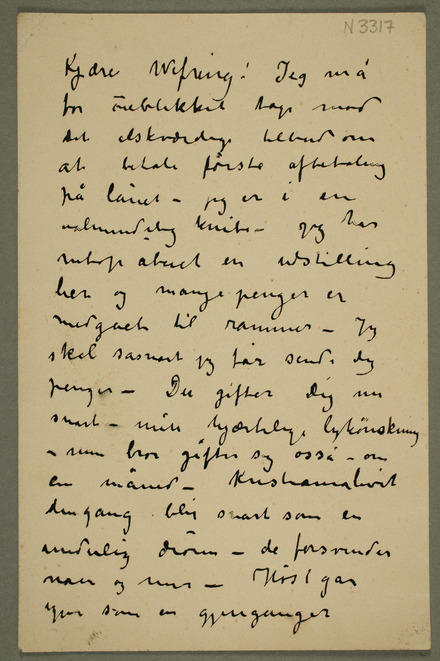 N 3317
Kjære Wefring! Jeg må
for öieblikket tage mod
det elskværdige tilbud om
at betale første afbetaling
på lånet – jeg er i en
almindelig knibe – jeg har
netop åbnet en udstilling
her og mange penger er
medgået til rammer – Jeg
skal såsnart jeg får sende dig
penger – Du gifter dig nu
snart – min hjærtelige lykönskning
– min bror gifter sig også – om
en måned – Kristianialivet
dengang blir snart som en
underlig dröm – de forsvinder
naer og mer – Höst går
igjen som en gjenganger